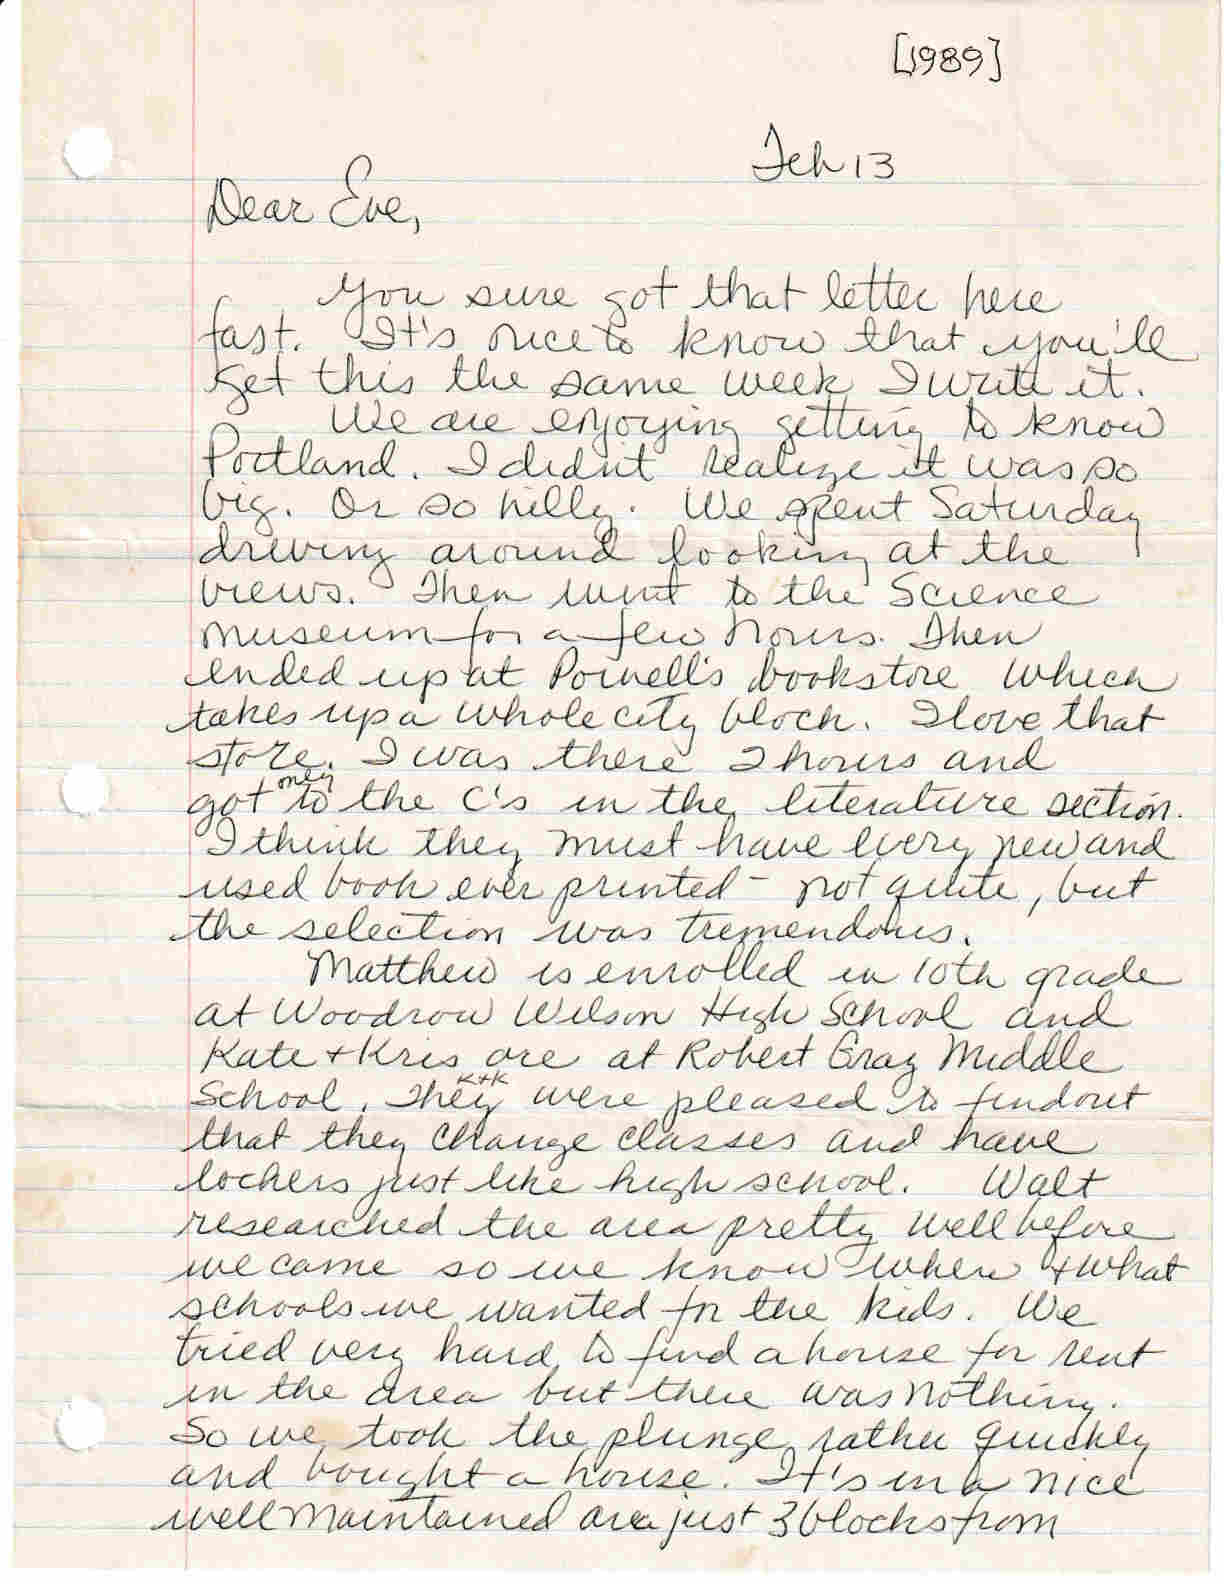 [1989]
Feb 13
Dear Eve,
You sure got that letter here
fast. It's nice to know that you'll
get this the same week I write it.
We are enjoying getting to know
Portland. I didn't realize it was so
big. Or so hilly. We spent Saturday
driving around looking at the
views. Then went to the Science
museum for a few hours. Then
ended up at Powell's bookstore which
takes up a whole city block. I love that
store. I was there 2 hours and
got only to the C's in the literature section.
I think they must have every new and
used book ever printed - not quite, but
the selection was tremendous.
Matthew is enrolled in 10th grade
at Woodrow Wilson High School and
Kate + Kris are at Robert Gray Middle
School. They K+K were pleased to find out
that they change classes and have
lockers just like high school. Walt
researched the area pretty well before
we came so we know where + what
schools we wanted for the kids. We
tried very hard to find a house for rent
in the area but there was nothing.
So we took the plunge rather quickly
and bought a house. It's in a nice
well maintained area just 3 blocks from